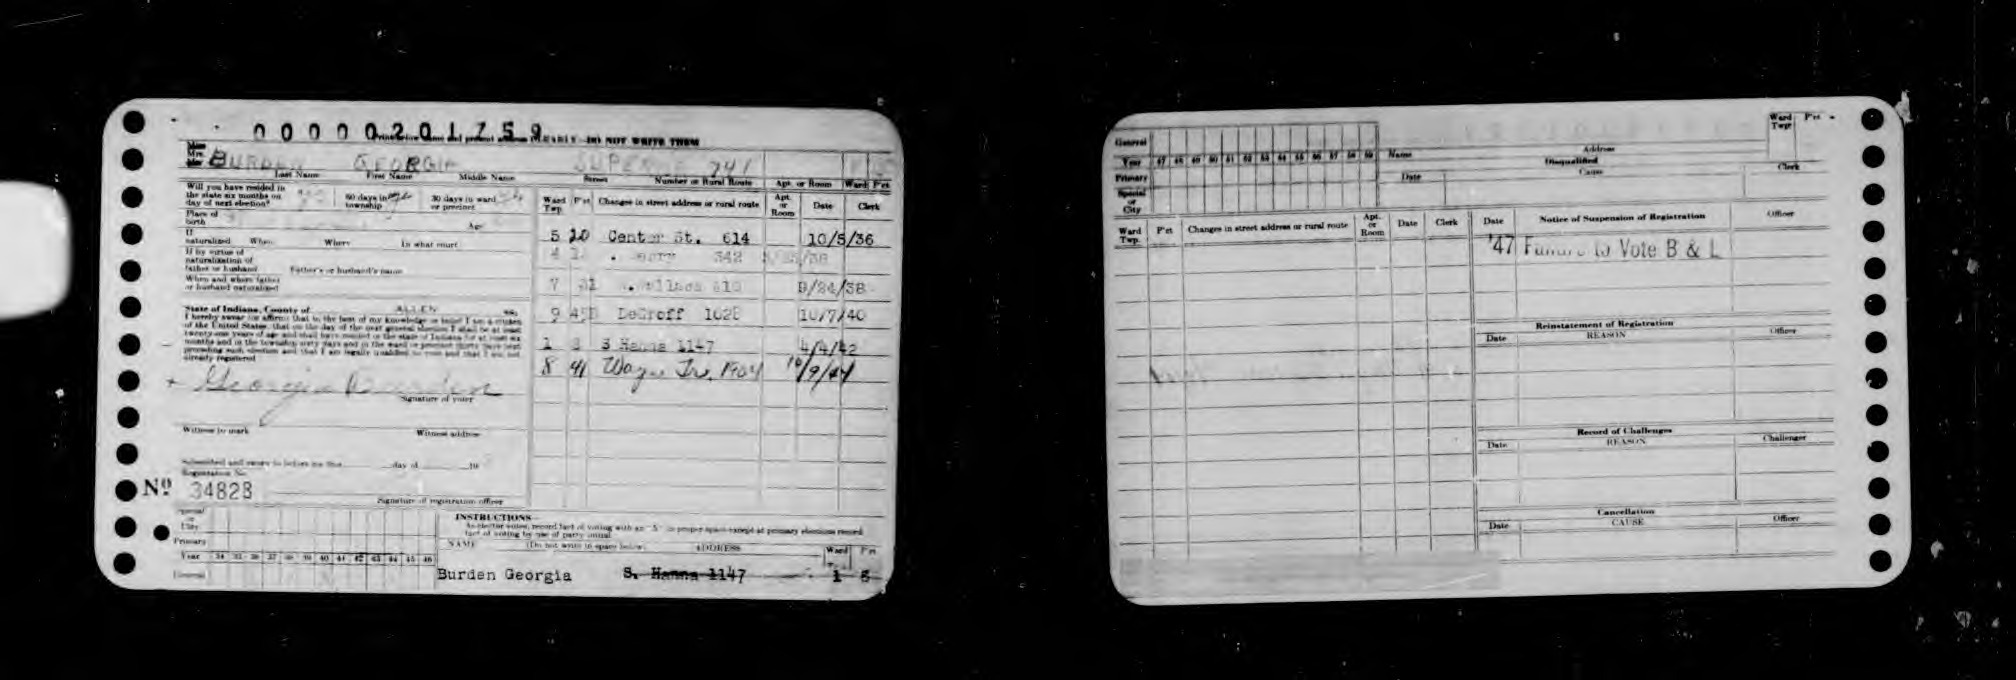 0 0 0 0 0 2 0 1 7 5 9 DO NOT WRITE THEM
Mrs. BURDEN GEORGIA SUPERIOR 741
Last Name First Name Middle Name Street Number or Rural Route Apt. or Room Ward P'ct
Will you have resided in
the state six months on
day of next election? yes 60 days in township yes 30 days in ward or precinct
Place of birth Age
If naturalized When Where In what court
If by virtue of
naturalization of
father or husband Father's or husband's name
When and where father
or husband naturalized
State of Indiana, County of ALLEN ss.
I hereby swear (or affirm) that to the best of my knowledge or belief I am a citizen
of the United States, that on the day of the next general election I shall be at least
twenty-one years of age and shall have resided in the state of Indiana for at least six
months and in the township sixty days and in the ward or precinct thirty days next
preceding such election and that I am legally qualified to vote and that I am not
already registered
+ Georgia Burden
Signature of voter
Witness to mark Witness address
Subscribed and sworn to before me this day of 19
Registration No.
No 34823
Signature of registration officer
Ward Twp. P'ct Changes in street address or rural route Apt. or Room Date Clerk
5 20 Center St. 614 10/5/36
4 342
7 9/24/38
9 DeGroff 1028 10/7/40
1 S Hanna 1147 4/4/42
8 41 Wayne Tr. 1904 10/9/44
Special or City
Primary
Year 34 35 36 37 38 39 40 41 42 43 44 45 46
General
INSTRUCTIONS
As elector votes, record fact of voting with an "X" in proper space except at primary elections record
fact of voting by use of party initial.
NAME (Do not write in space below) ADDRESS Ward P'ct
Burden Georgia S. Hanna 1147 1 8
General
Year 47 48 49 50 51 52 53 54 55 56 57 58 59
Primary
Special or City
Name Address Ward Twp. P'ct
Disqualified
Date Cause Clerk
Ward Twp. P'ct Changes in street address or rural route Apt. or Room Date Clerk
Date Notice of Suspension of Registration Officer
'47 Failure to Vote B & L
Reinstatement of Registration
Date REASON Officer
Record of Challenges
Date REASON Challenger
Cancellation
Date CAUSE Officer